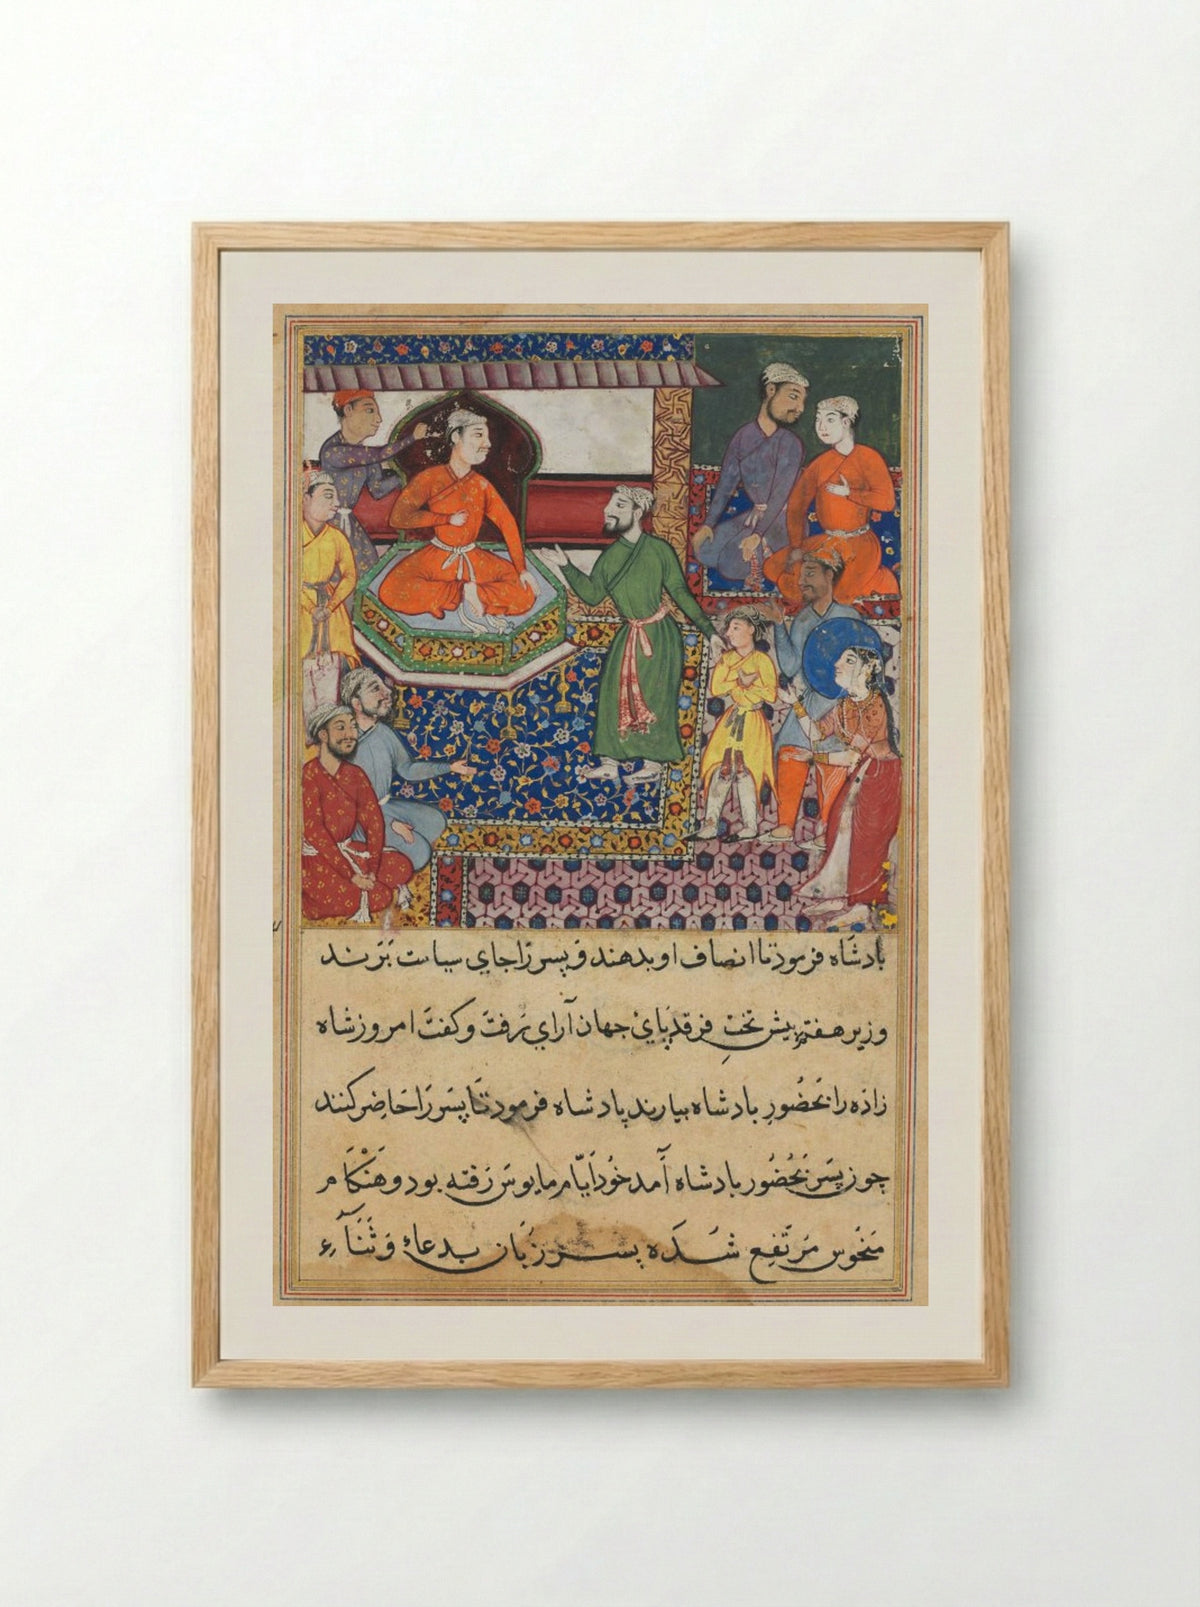 بادشاه فرمود تا انصاف او بدهند و پسر را جای سیاست برند
وزیر هفتم پیش تخت فرقد پایٔ جهان آرای رفت و کفت امروز شاه
زاده را بحضور بادشاه بیارند پادشاه فرمود تا پسر را حاضر کنند
چون پسر بحضور بادشاه آمد خود ایام مایوس رفته بود و هنکام
منحوس مرتفع شده پسر زبان بدعاء و ثناء